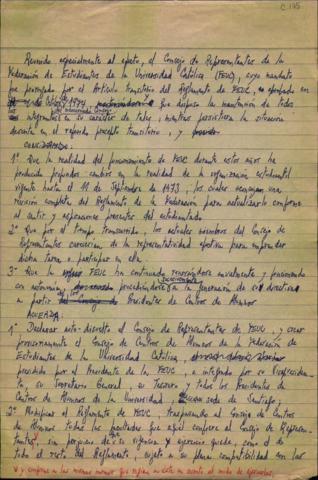 C.195
Reunido especialmente al efecto, el Consejo de Representantes de la
Federación de Estudiantes de la Universidad Católica (FEUC), cuyo mandato
fue prorrogado por el Artículo Transitorio del Reglamento de FEUC, aprobado en
de 1974, que dispuso la mantención de todos
integrantes en su carácter de tales, mientras persistiera la situación
descrita en el referido precepto transitorio, y
CONSIDERANDO:
1° Que la realidad del funcionamiento de FEUC durante estos años ha
producido profundos cambios en la realidad de la organización estudiantil
vigente hasta el 11 de Septiembre de 1973, los cuales aconsejan una
revisión completa del Reglamento de la Federación para actualizarlo conforme
al sentir y aspiraciones presentes del estudiantado.
2° Que por el tiempo transcurrido, los actuales miembros del Consejo de
Representantes carecerían de la representatividad efectiva para emprender
dicha tarea o participar en ella.
3° Que la FEUC ha continuado renovándose anualmente y funcionando
con autonomía, procediéndose a la generación de su directiva
a partir Presidentes de Centros de Alumnos
ACUERDA:
1° Declarar auto-disuelto el Consejo de Representantes de FEUC, y crear
el Consejo de Centros de Alumnos de la Federación de
Estudiantes de la Universidad Católica,
presidido por el Presidente de la FEUC, e integrado por su Vicepresiden-
te, su Secretario General, su Tesorero y todos los Presidentes de
Centros de Alumnos de la Universidad, sede de Santiago;
2° Modificar el Reglamento de FEUC, traspasando al Consejo de Centros
de Alumnos todas las facultades que aquél confiere al Consejo de Represen-
tantes, sin perjuicio de que su vigencia y ejercicio quede, como el de
todo el resto del Reglamento, sujeto a su plena compatibilidad con las
y conforme a las mismas normas que regían en éste en cuanto al modo de ejercerlas,